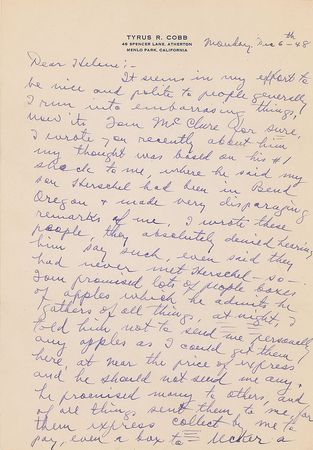 TYRUS R. COBB
48 SPENCER LANE, ATHERTON
MENLO PARK, CALIFORNIA
Monday, Dec 6th - 48
Dear Helene:-
It seems in my effort to
be nice and polite to people generally
I run into embarrassing things,
now its Tom McClure for sure,
I wrote you recently about him
my thought was based on his #1
to me, where he said my
son Herschel had been in Bend
Oregon & made very disparaging
remarks of me, I wrote these
people, they absolutely denied hearing
him say such, even said they
had never met Herschel - so -
Tom promised lots of people boxes
of apples which he admits he
gathers of all things, at night, I
told him, not to send me personally
any apples as I could get them
here, at near the price of express
and he should not send me any,
he promised money to others, and
of all things sent them to me, for
them express collect by me to
pay, even a box to a